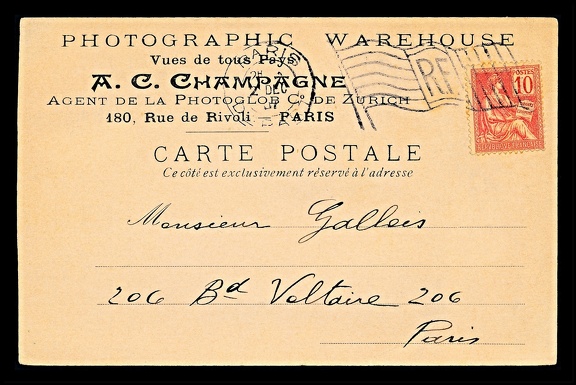 PHOTOGRAPHIC WAREHOUSE
Vues de tous Pays
A. C. CHAMPAGNE
AGENT DE LA PHOTOGLOB Co. DE ZURICH
180, Rue de Rivoli — PARIS
PARIS
DEC
RF
POSTES
10
REPUBLIQUE FRANCAISE
CARTE POSTALE
Ce côté est exclusivement réservé à l'adresse
Monsieur Gallois
206 Bd Voltaire 206
Paris